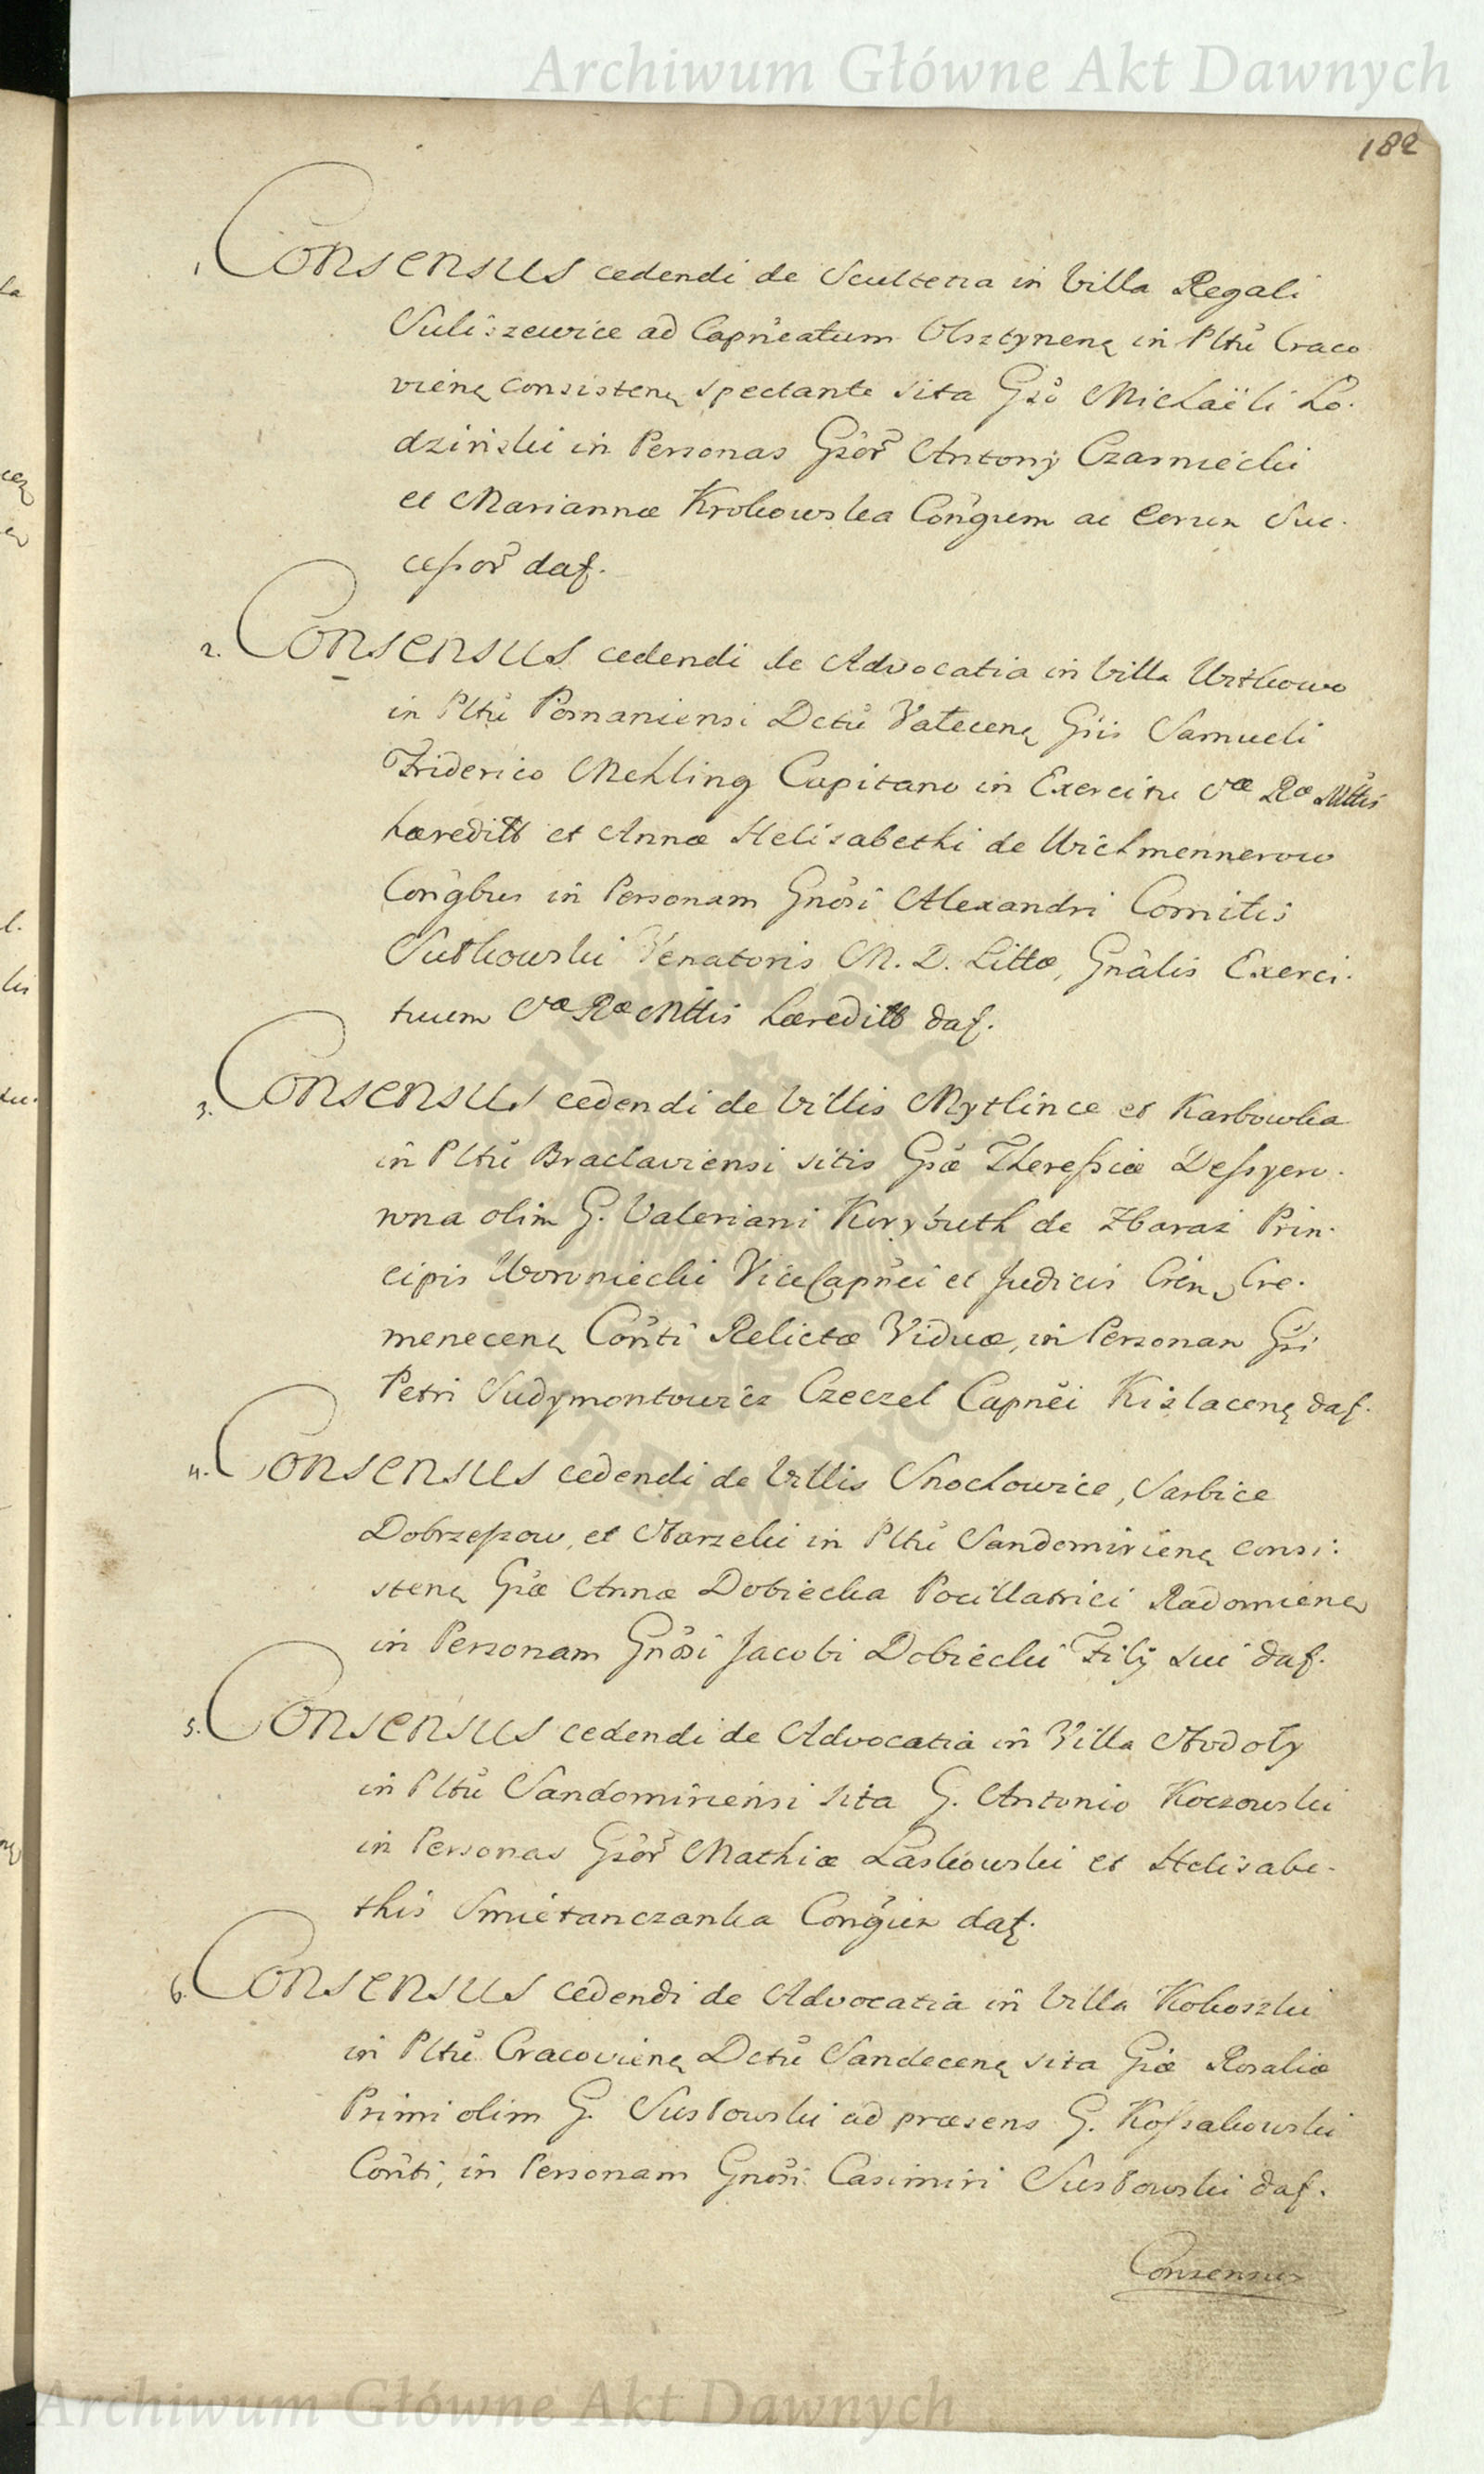 Archiwum Główne Akt Dawnych
182
1. Consensus cedendi de Scultetia in Villa Regali
Suliszewice ad Capneatum Olsztynen in Pltu Craco
vien consisten spectante sita Gso Michaëli Ło.
dzinski in Personas Gsor Antonij Czarniecki
et Mariannæ Krokowska Congum ac Eorum Suc.
cessor dat.
2. Consensus cedendi de Advocatia in Villa
in Pltu Posnaniensi Dctu Valecen Gsis Samueli
Friderico Mehling Capitano in Exercitu Sæ Ræ Mttis
hæreditt et Annæ Helisabethi de Wichmennerow
Congbus in Personam Gnosi Alexandri Comitis
Sułkowski Venatoris M. D. Litt., Gnalis Exerci.
tuum Sæ Ræ Mttis hæreditt dat.
3. Consensus cedendi de Villis Mytlince et Karbowka
in Pltu Braclaviensi sitis Gsæ Theressiæ Dessyero.
wna olim G. Valeriani Korybuth de Zbaraż Prin.
cipis Woroniecki ViceCapnei et Judicis Cren, Cre.
menecen Conti Relictæ Viduæ, in Personam Gsi
Petri Sudymontowicz Czeczel Capnei Kislacen dat.
4. Consensus cedendi de Villis Snochowice, Sarbice
Dobrzeszow, et in Pltu Sandomirien consi:
sten Gsæ Annæ Dobiecka Pocillatrici Radomien
in Personam Gnosi Jacobi Dobiecki Filij sui dat.
5. Consensus cedendi de Advocatia in Villa
in Pltu Sandomiriensi sita G. Antonio Koczowski
in Personas Gsor Mathiæ Laskowski et Helisabe-
this Smietanczanka Congum dat.
6. Consensus cedendi de Advocatia in Villa Kokoszki
in Pltu Cracovien Dctu Sandecen sita Gsæ Rosaliæ
Primi olim G. ad præsens G. Kossakowski
Conti, in Personam Gnosi Casimiri dat.
Consensus
Archiwum Główne Akt Dawnych